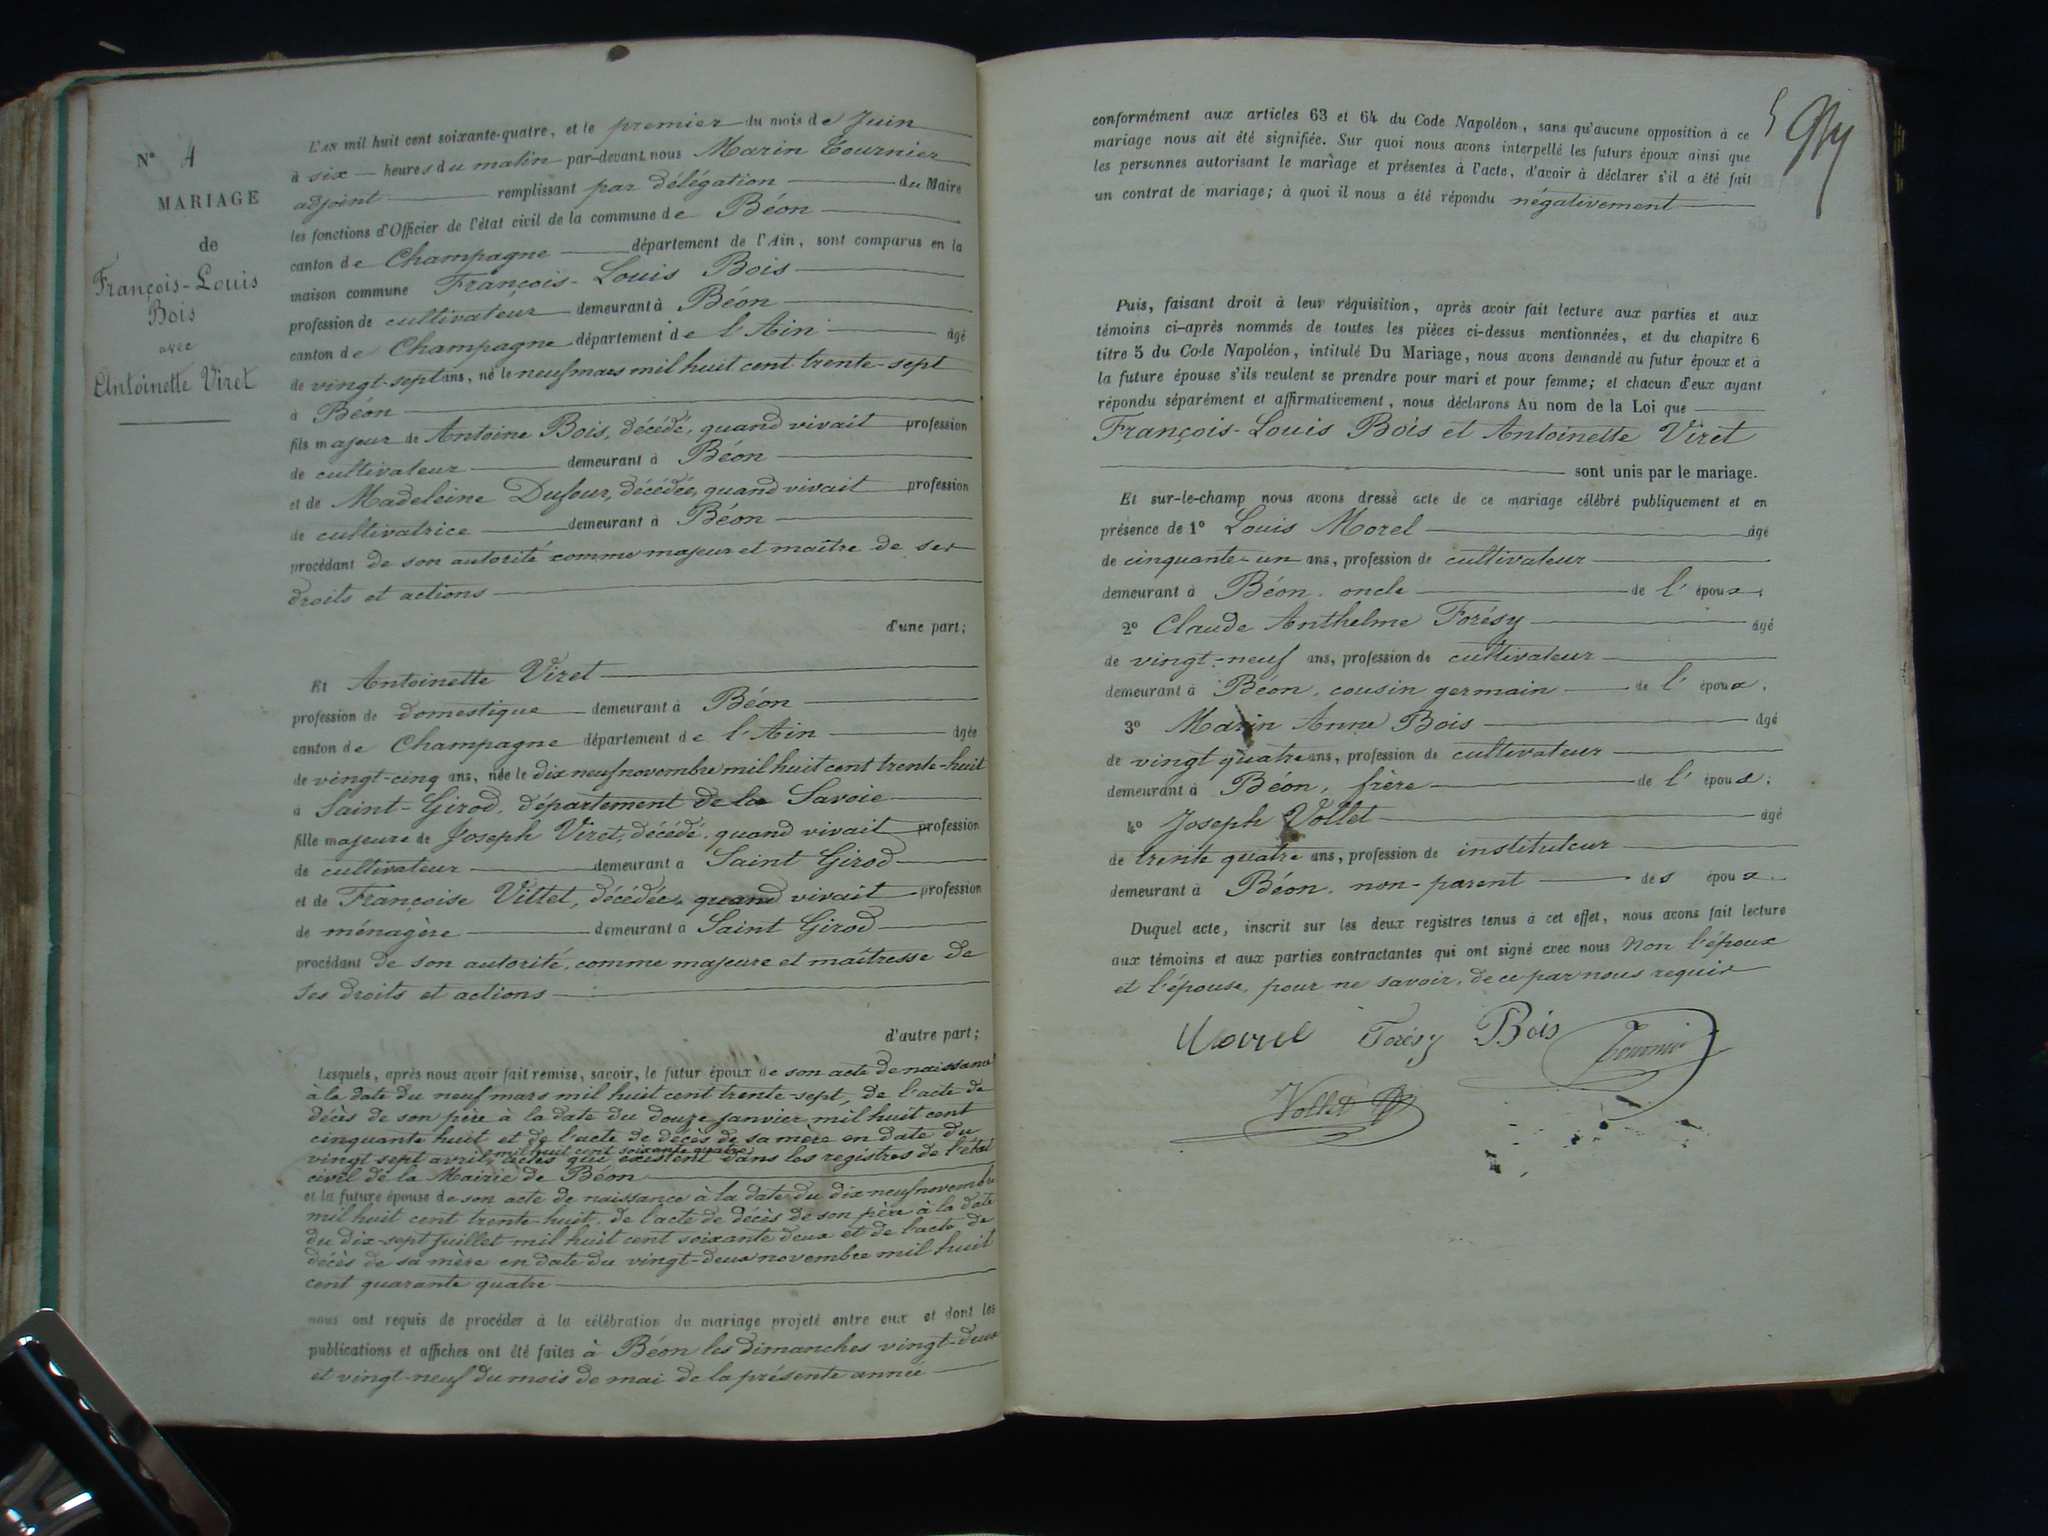 N° 4
MARIAGE
de
François-Louis
Bois
avec
Antoinette Viret
L'AN mil huit cent soixante-quatre, et le premier du mois de Juin
à six heures du matin par-devant nous Marin Tournier
adjoint remplissant par délégation du Maire
les fonctions d'Officier de l'état civil de la commune de Béon
canton de Champagne département de l'Ain, sont comparus en la
maison commune François-Louis Bois
profession de cultivateur demeurant à Béon
canton de Champagne département de l'Ain âgé
de vingt-sept ans, né le neuf mars mil huit cent trente-sept
à Béon
fils majeur de Antoine Bois, décédé, quand vivait profession
de cultivateur demeurant à Béon
et de Madeleine Dufour, décédée, quand vivait profession
de cultivatrice demeurant à Béon
procédant de son autorité comme majeur et maître de ses
droits et actions
d'une part;
Et Antoinette Viret
profession de domestique demeurant à Béon
canton de Champagne département de l'Ain âgée
de vingt-cinq ans, née le dix neuf novembre mil huit cent trente-huit
à Saint-Girod, département de la Savoie
fille majeure de Joseph Viret, décédé, quand vivait profession
de cultivateur demeurant à Saint Girod
et de Françoise Vittet, décédée, quand vivait profession
de ménagère demeurant à Saint Girod
procédant de son autorité, comme majeure et maîtresse de
ses droits et actions
d'autre part;
Lesquels, après nous avoir fait remise, savoir, le futur époux de son acte de naissance
à la date du neuf mars mil huit cent trente-sept, de l'acte de
décès de son père à la date du douze janvier mil huit cent
cinquante huit et de l'acte de décès de sa mère en date du
mil huit cent soixante quatre
vingt sept avril, actes qui existent dans les registres de l'état
civil de la Mairie de Béon
et la future épouse de son acte de naissance à la date du dix neuf novembre
mil huit cent trente-huit, de l'acte de décès de son père à la date
du dix-sept juillet mil huit cent soixante deux et de l'acte de
décès de sa mère en date du vingt-deux novembre mil huit
cent quarante quatre
nous ont requis de procéder à la célébration du mariage projeté entre eux et dont les
publications et affiches ont été faites à Béon les dimanches vingt-deux
et vingt-neuf du mois de mai de la présente année
conformément aux articles 63 et 64 du Code Napoléon, sans qu'aucune opposition à ce
mariage nous ait été signifiée. Sur quoi nous avons interpellé les futurs époux ainsi que
les personnes autorisant le mariage et présentes à l'acte, d'avoir à déclarer s'il a été fait
un contrat de mariage; à quoi il nous a été répondu négativement
Puis, faisant droit à leur réquisition, après avoir fait lecture aux parties et aux
témoins ci-après nommés de toutes les pièces ci-dessus mentionnées, et du chapitre 6
titre 5 du Code Napoléon, intitulé Du Mariage, nous avons demandé au futur époux et à
la future épouse s'ils veulent se prendre pour mari et pour femme; et chacun d'eux ayant
répondu séparément et affirmativement, nous déclarons Au nom de la Loi que
François-Louis Bois et Antoinette Viret
sont unis par le mariage.
Et sur-le-champ nous avons dressé acte de ce mariage célébré publiquement et en
présence de 1° Louis Morel âgé
de cinquante-un ans, profession de cultivateur
demeurant à Béon, oncle de l'époux;
2° Claude Anthelme Forésy âgé
de vingt-neuf ans, profession de cultivateur
demeurant à Béon, cousin germain de l'époux;
3° Marin Anne Bois âgé
de vingt quatre ans, profession de cultivateur
demeurant à Béon, frère de l'époux;
4° Joseph Vollet âgé
de trente quatre ans, profession de instituteur
demeurant à Béon, non-parent des époux.
Duquel acte, inscrit sur les deux registres tenus à cet effet, nous avons fait lecture
aux témoins et aux parties contractantes qui ont signé avec nous non l'époux
et l'épouse, pour ne savoir, de ce par nous requis
Morel Forésy Bois Tournier
Vollet